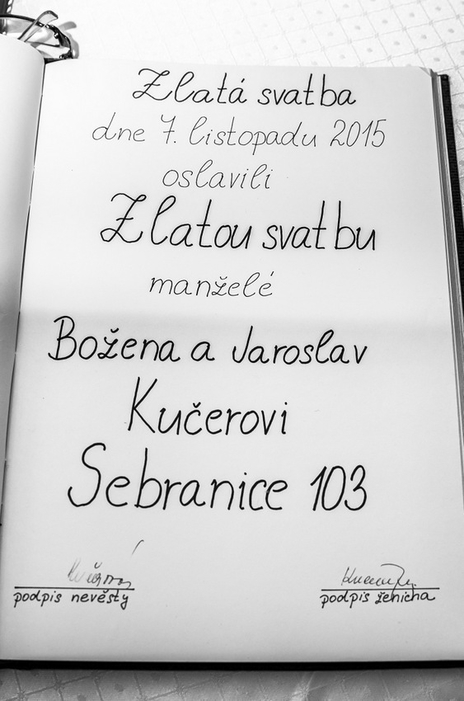 Zlatá svatba
dne 7. listopadu 2015
oslavili
Zlatou svatbu
manželé
Božena a Jaroslav
Kučerovi
Sebranice 103
podpis nevěsty
podpis ženicha